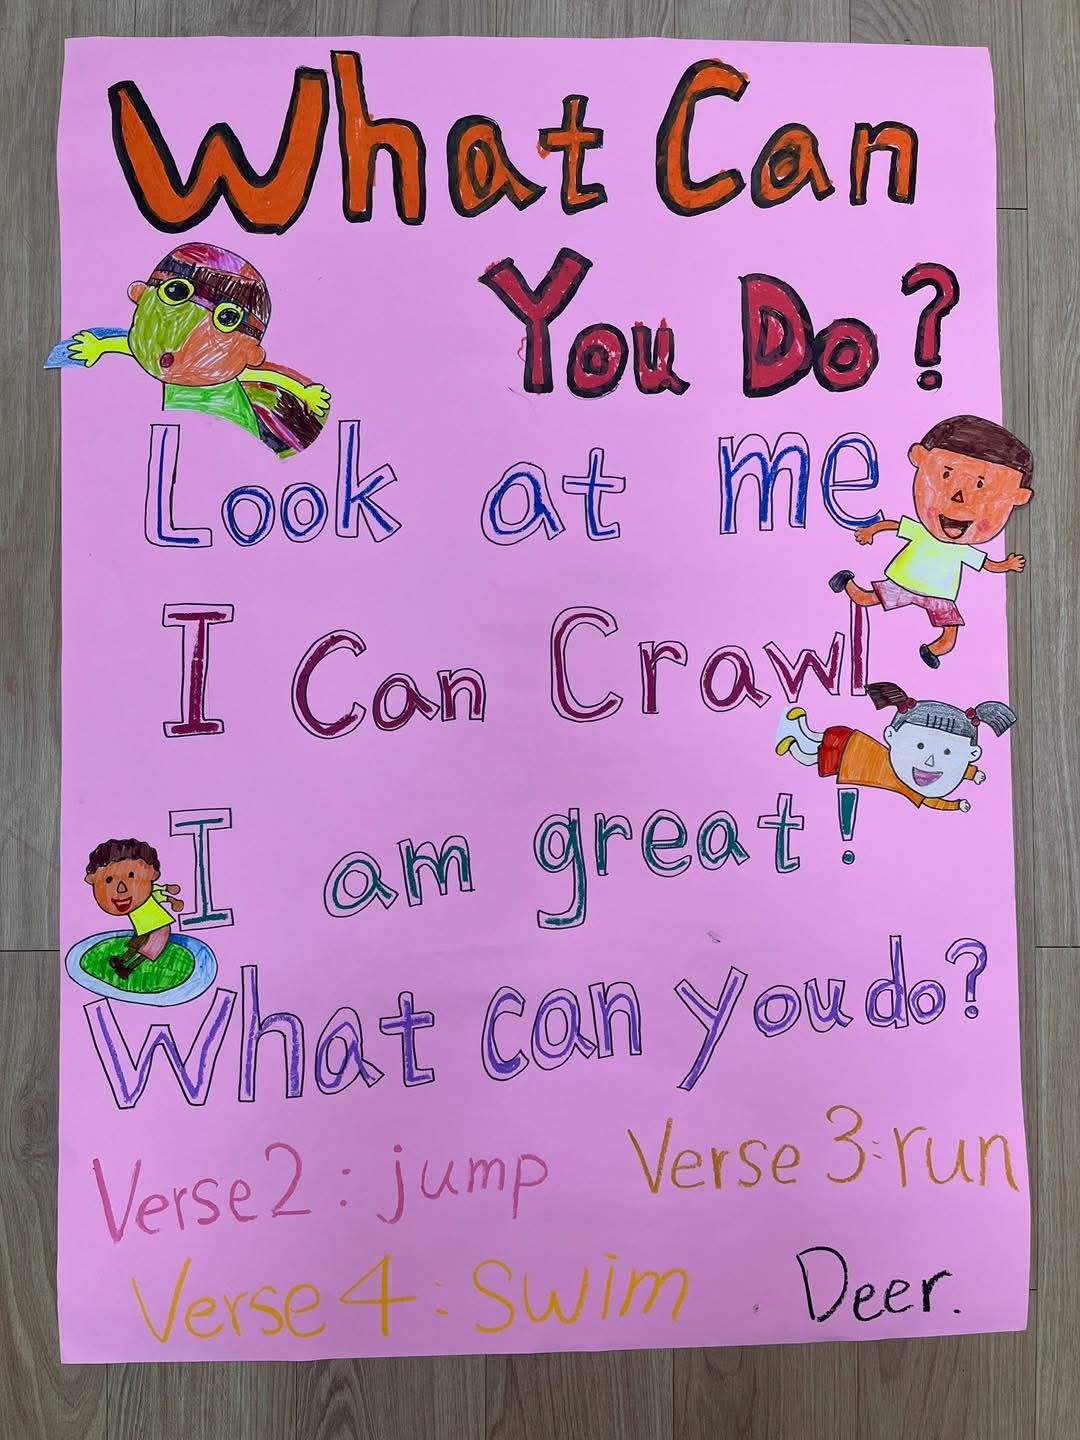 What Can
You Do?
Look at me
I Can Crawl
I am great!
What can you do?
Verse 2: jump
Verse 3: run
Verse 4: swim
Deer.